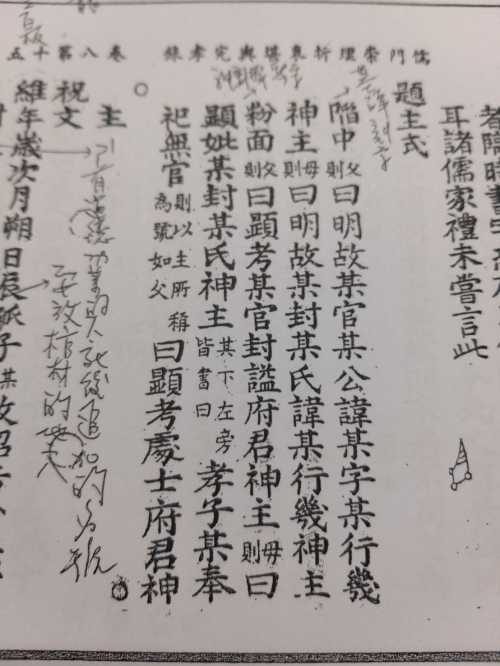 儒門崇理折衷堪輿完孝錄 卷八第十五
耳諸儒家禮未嘗言此
題主式
陷中父則曰明故某官某公諱某字某行幾
神主母則曰明故某封某氏諱某行幾神主
粉面父則曰顯考某官封謚府君神主母則曰
顯妣某封某氏神主其下左旁皆書曰孝子某奉
祀無官則以主所稱為號如父曰顯考處士府君神
主
人死後追加的名號
祝文
放棺材的
維年歲次月朔日辰孤子某敢昭告